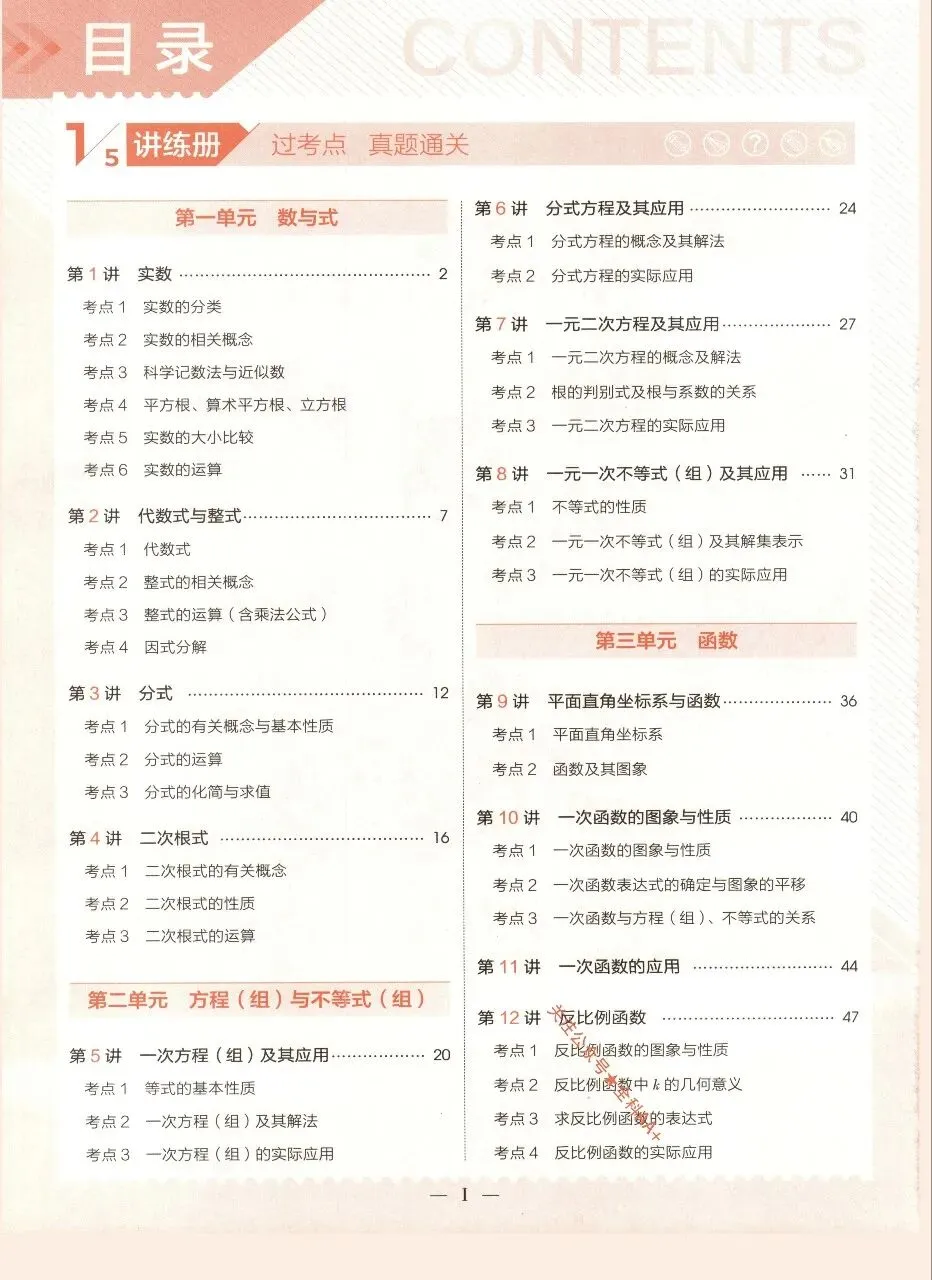 目录
CONTENTS
1/5 讲练册 过考点 真题通关
第一单元 数与式
第1讲 实数 2
考点1 实数的分类
考点2 实数的相关概念
考点3 科学记数法与近似数
考点4 平方根、算术平方根、立方根
考点5 实数的大小比较
考点6 实数的运算
第2讲 代数式与整式 7
考点1 代数式
考点2 整式的相关概念
考点3 整式的运算(含乘法公式)
考点4 因式分解
第3讲 分式 12
考点1 分式的有关概念与基本性质
考点2 分式的运算
考点3 分式的化简与求值
第4讲 二次根式 16
考点1 二次根式的有关概念
考点2 二次根式的性质
考点3 二次根式的运算
第二单元 方程(组)与不等式(组)
第5讲 一次方程(组)及其应用 20
考点1 等式的基本性质
考点2 一次方程(组)及其解法
考点3 一次方程(组)的实际应用
第6讲 分式方程及其应用 24
考点1 分式方程的概念及其解法
考点2 分式方程的实际应用
第7讲 一元二次方程及其应用 27
考点1 一元二次方程的概念及解法
考点2 根的判别式及根与系数的关系
考点3 一元二次方程的实际应用
第8讲 一元一次不等式(组)及其应用 31
考点1 不等式的性质
考点2 一元一次不等式(组)及其解集表示
考点3 一元一次不等式(组)的实际应用
第三单元 函数
第9讲 平面直角坐标系与函数 36
考点1 平面直角坐标系
考点2 函数及其图象
第10讲 一次函数的图象与性质 40
考点1 一次函数的图象与性质
考点2 一次函数表达式的确定与图象的平移
考点3 一次函数与方程(组)、不等式的关系
第11讲 一次函数的应用 44
第12讲 反比例函数 47
考点1 反比例函数的图象与性质
考点2 反比例函数中k的几何意义
考点3 求反比例函数的表达式
考点4 反比例函数的实际应用
— I —